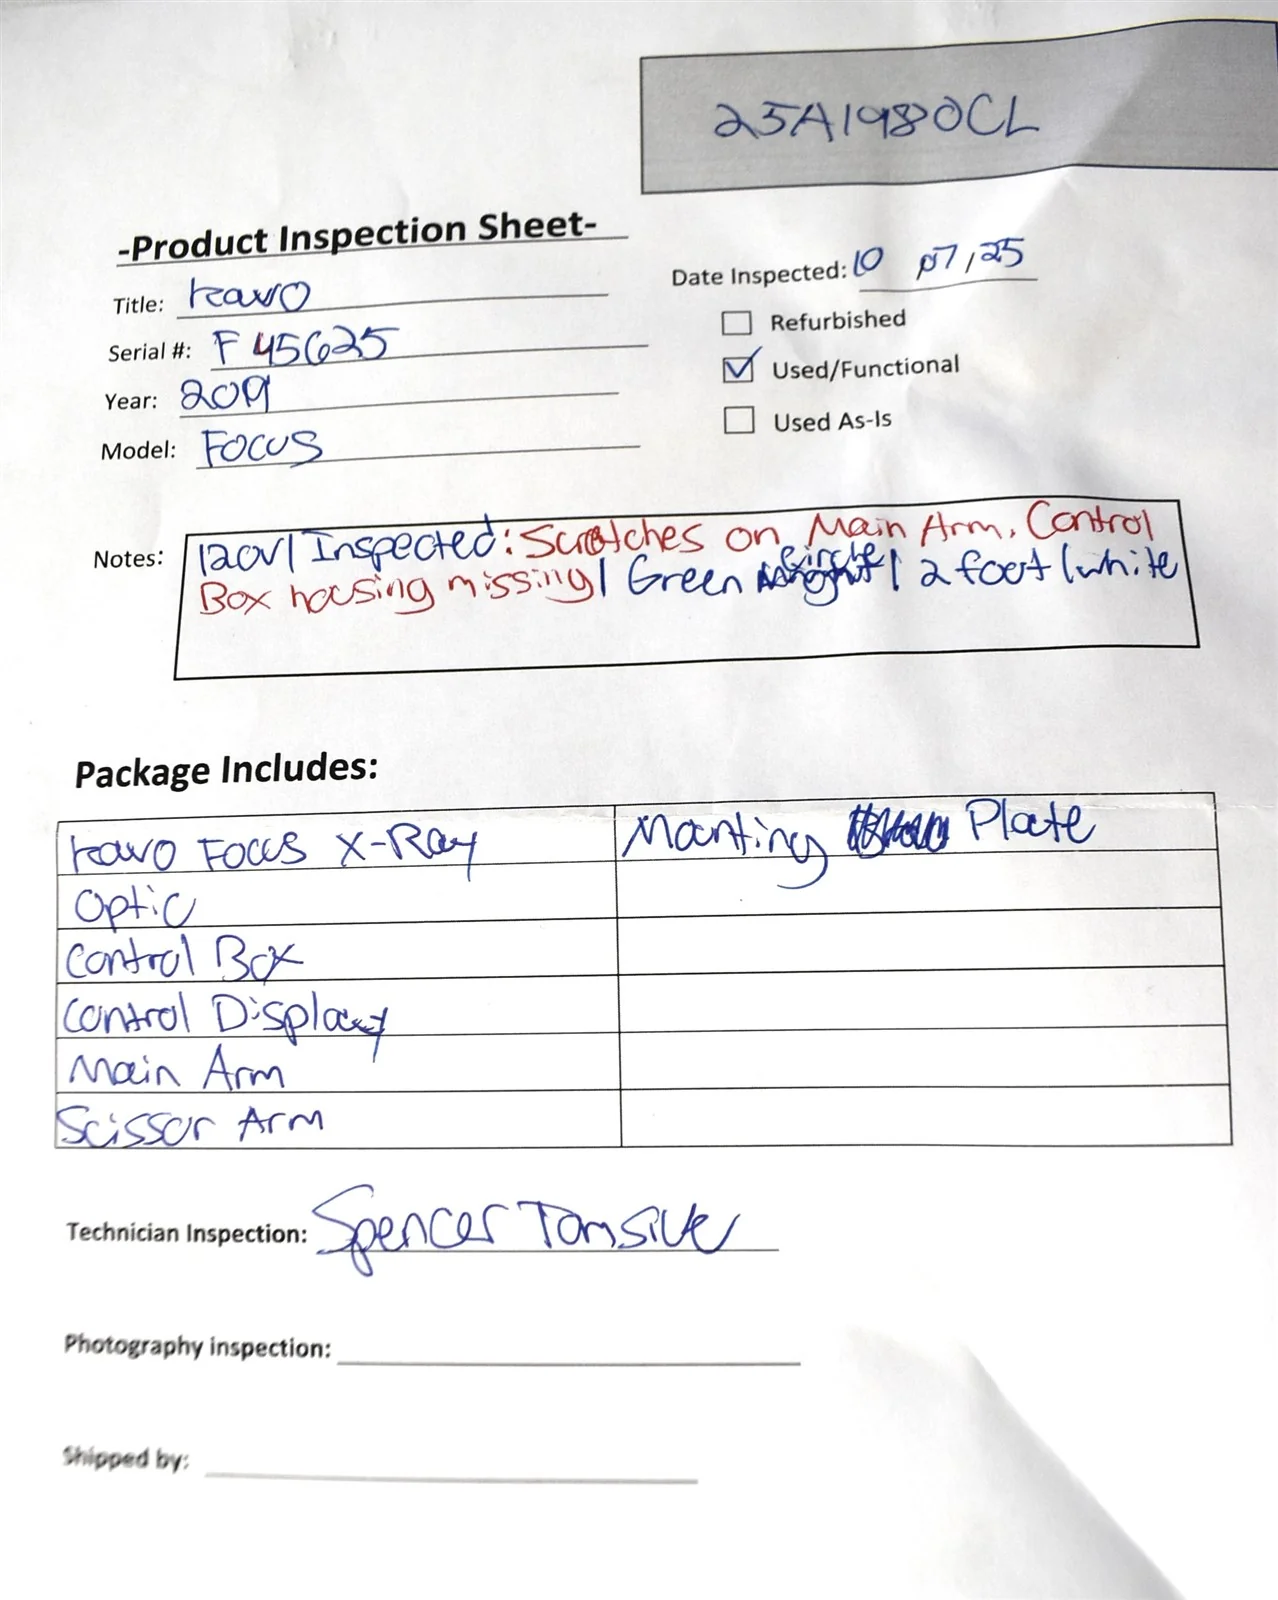 25A1980CL
-Product Inspection Sheet-
Title: Kavo
Date Inspected: 10 07, 25
Serial #: F 45625
Refurbished
Year: 2019
Used/Functional
Model: FOCUS
Used As-Is
Notes: 120V| Inspected: Scratches on Main Arm, Control
Box housing missing| Green Single | 2 foot | white
Package Includes:
Kavo Focus X-Ray
Mounting Plate
Optic
Control Box
Control Display
Main Arm
Scissor Arm
Technician Inspection: Spencer
Photography inspection:
Shipped by: